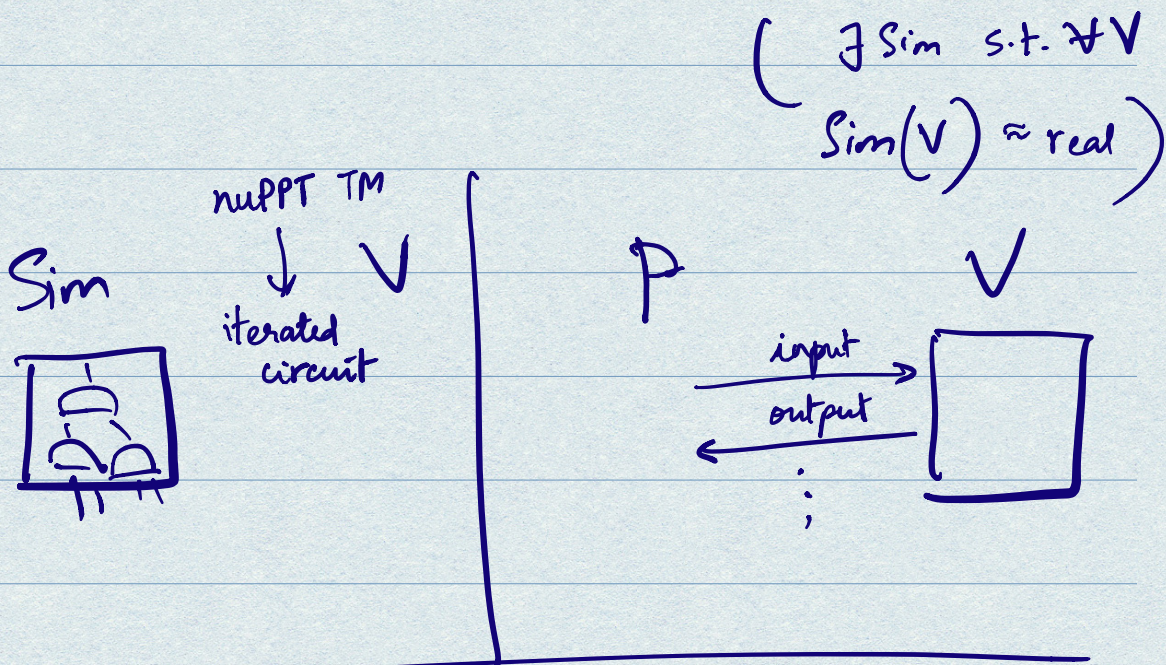 ( ∃ Sim s.t. ∀ V
Sim(V) ≈ real )
nuPPT TM
↓
Sim
V
iterated
circuit
P
V
input
output